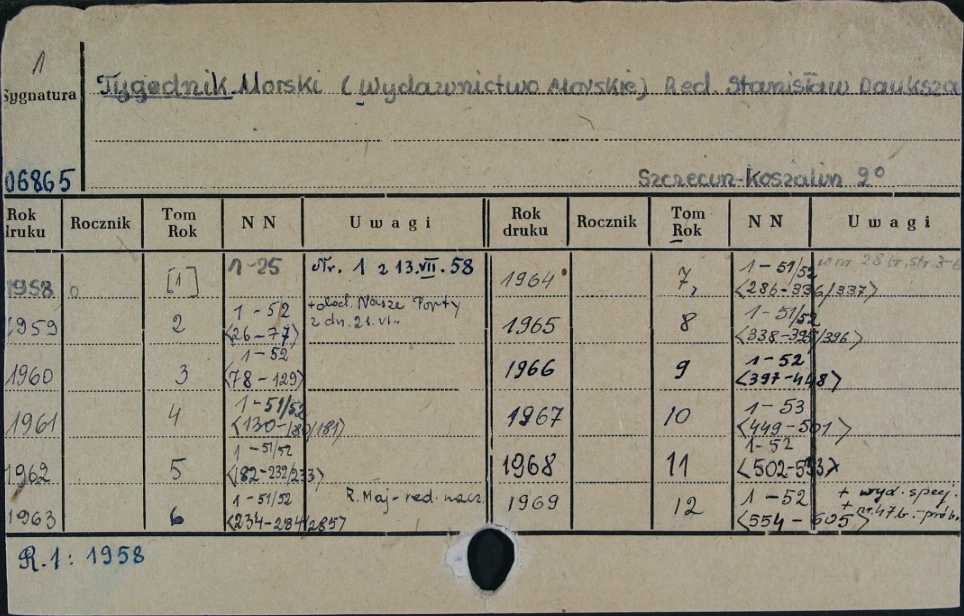 1
Sygnatura
Tygodnik Morski (Wydawnictwo Morskie) Red. Stanisław Dauksza
06865
Szczecin-Koszalin 2°
Rok druku Rocznik Tom Rok NN Uwagi Rok druku Rocznik Tom Rok NN Uwagi
1958 [1] 1-25 Nr. 1 z 13.VII.58 1964 7, 1-51/52 <286-336/337> w nr 28 br. str. 3-6
1959 2 1-52 <26-77> +dod. Nasze Porty z dn. 21.VI. 1965 8 1-51/52 <338-395/396>
1960 3 1-52 <78-129> 1966 9 1-52 <397-448>
1961 4 1-51/52 <130-180/181> 1967 10 1-53 <449-501>
1962 5 1-51/52 <182-232/233> 1968 11 1-52 <502-553>
1963 6 1-51/52 <234-284/285> R. Maj-red. nacz. 1969 12 1-52 <554-605> + wyd. specj. + nr. 47 b.-prób.
R.1: 1958